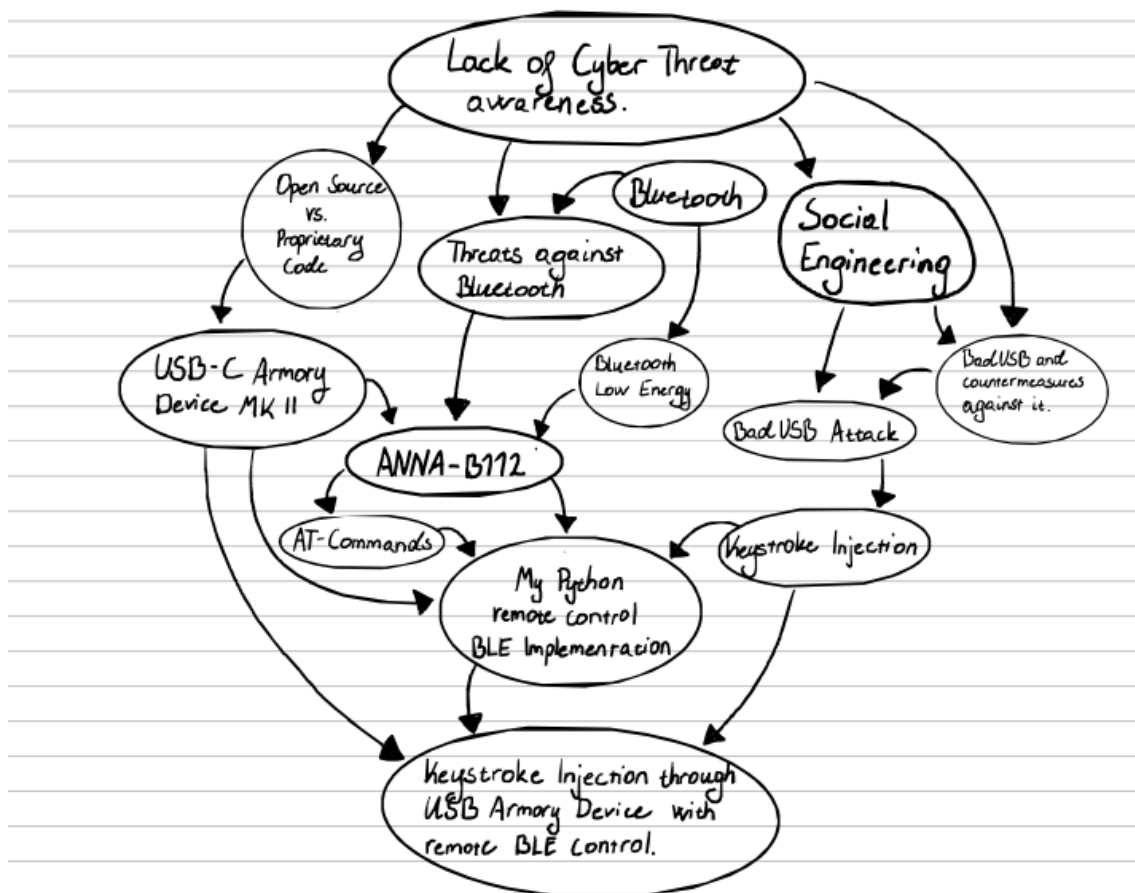 Lack of Cyber Threat
awareness.
Open Source
vs.
Proprietary
Code
Bluetooth
Threats against
Bluetooth
Social
Engineering
USB-C Armory
Device MK II
Bluetooth
Low Energy
BadUSB and
countermeasures
against it.
BadUSB Attack
ANNA-B112
AT-Commands
Keystroke Injection
My Python
remote control
BLE Implemenration
Keystroke Injection through
USB Armory Device with
remote BLE control.